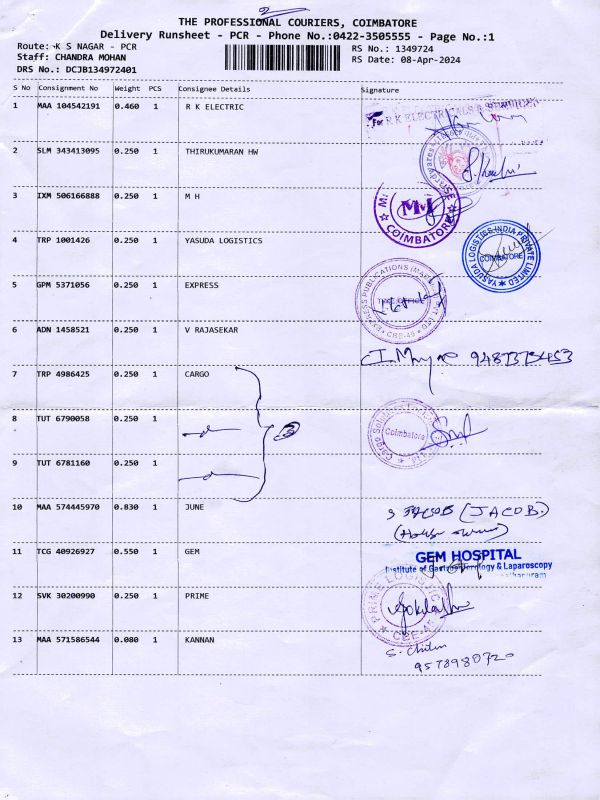 THE PROFESSIONAL COURIERS, COIMBATORE
Delivery Runsheet - PCR - Phone No.:0422-3505555 - Page No.:1
Route: K S NAGAR - PCR
RS No.: 1349724
Staff: CHANDRA MOHAN
RS Date: 08-Apr-2024
DRS No.: DCJB134972401
S No Consignment No Weight PCS Consignee Details Signature
1 MAA 104542191 0.460 1 R K ELECTRIC
For R K ELECTRICALS &
2 SLM 343413095 0.250 1 THIRUKUMARAN HW
3 IXM 506166888 0.250 1 M H
COIMBATORE
4 TRP 1001426 0.250 1 YASUDA LOGISTICS
YASUDA LOGISTICS INDIA PRIVATE LIMITED
COIMBATORE
5 GPM 5371056 0.250 1 EXPRESS
EXPRESS PUBLICATIONS
CBE-45
6 ADN 1458521 0.250 1 V RAJASEKAR
7 TRP 4986425 0.250 1 CARGO
8 TUT 6790058 0.250 1
Cargo
Coimbatore
9 TUT 6781160 0.250 1
10 MAA 574445970 0.830 1 JUNE
(JACOB.)
11 TCG 40926927 0.550 1 GEM
GEM HOSPITAL
Institute of Gastroenterology & Laparoscopy
12 SVK 30200990 0.250 1 PRIME
PRIME LOGISTICS
CBE-45
13 MAA 571586544 0.080 1 KANNAN
9578980720